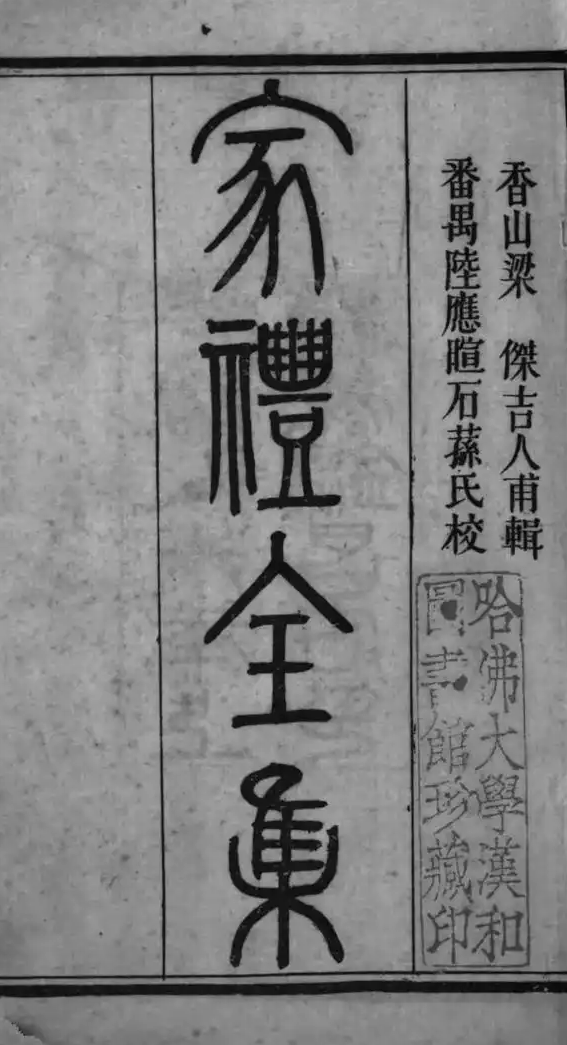 香山梁 傑吉人甫輯
番禺陸應暄石蓀氏校
哈佛大學漢和
圖書館珍藏印
家禮全集